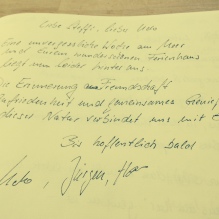 Liebe Steffi, liebe
Eine unvergessliche Woche am Meer
und einem wunderschönen Ferienhaus
liegt nun leider hinter uns.
Die Erinnerung an Freundschaft
Zufriedenheit und gemeinsames Genieß
dieser Natur verbindet uns mit
Bis hoffentlich bald
Jürgen,